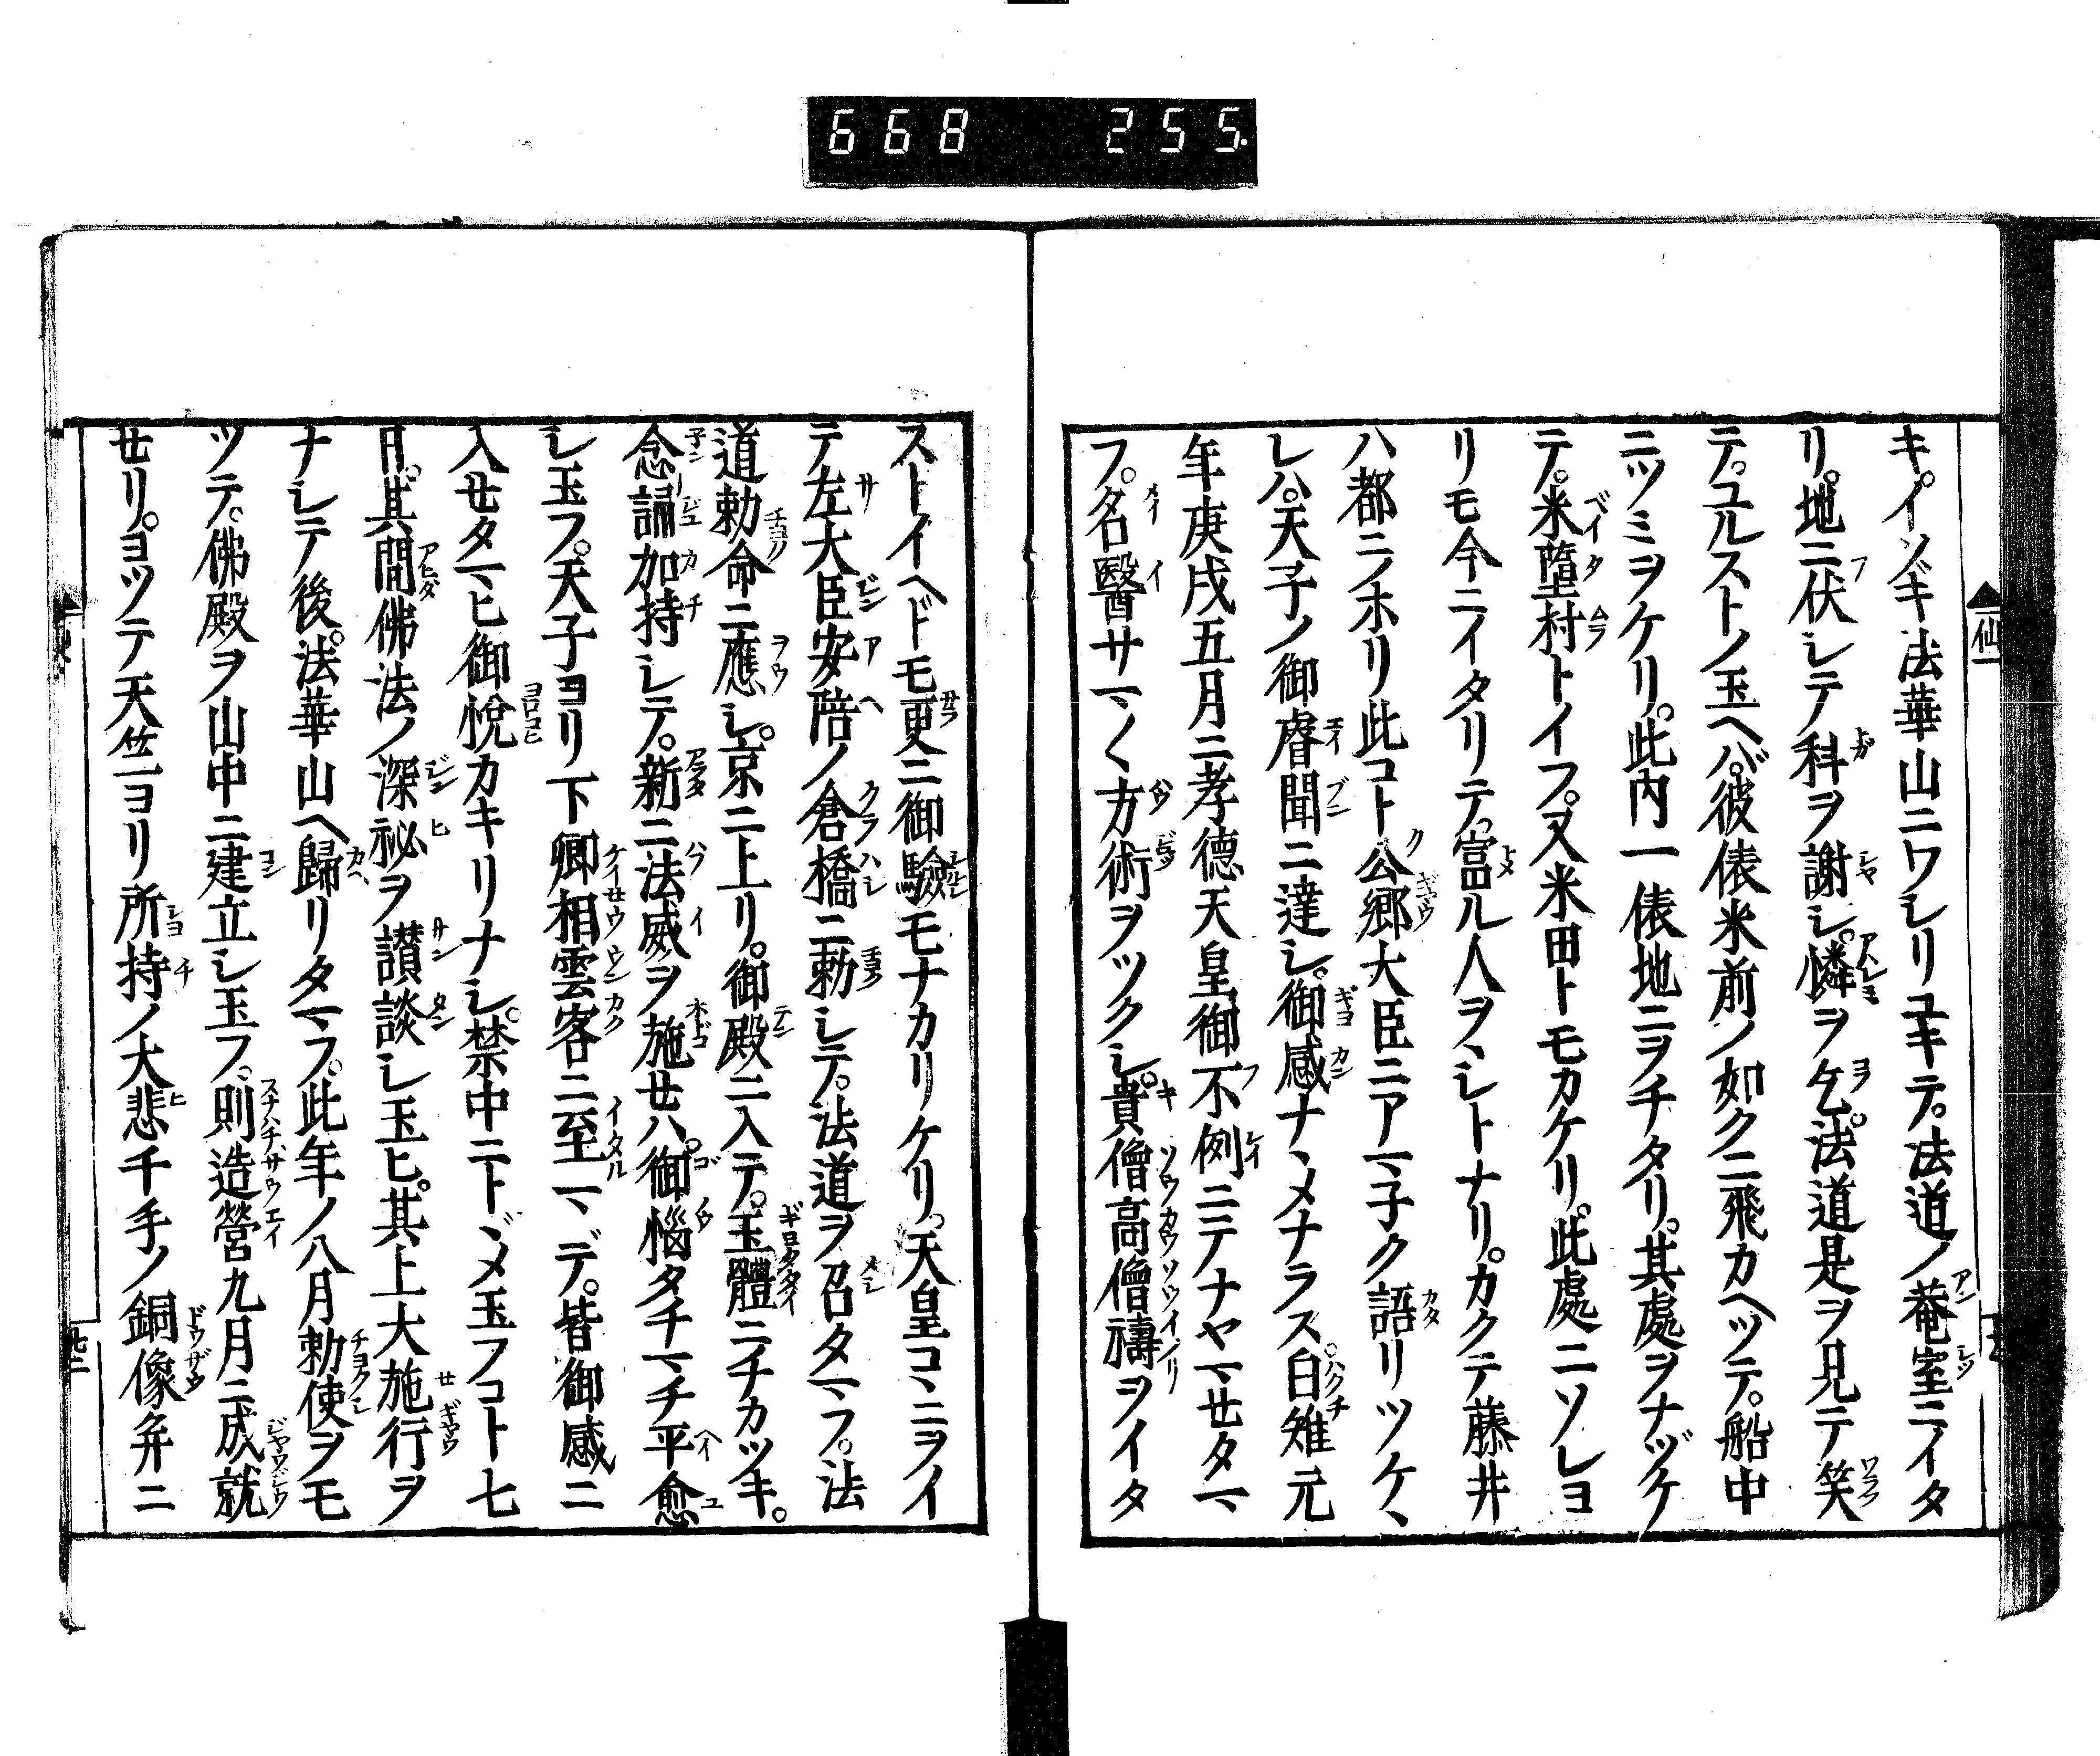 668 255
キ。イソギ法華山ニワシリユキテ。法道ノ菴室ニイタ
リ。地ニ伏シテ科ヲ謝シ。憐ヲ乞。法道是ヲ見テ笑
テ。ユルストノ玉ヘバ。彼俵米前ノ如クニ飛カヘツテ。船中
ニツミヲケリ。此内一俵地ニヲチタリ。其處ヲナヅケ
テ。米墮村トイフ。又米田トモカケリ。此處ニソレヨ
リモ今ニイタリテ。富ル人ヲヽシトナリ。カクテ藤井
ハ都ニノホリ此コト公卿大臣ニアマ子ク語リツケヽ
レハ。天子ノ御睿聞ニ達シ。御感ナヽメナラス。白雉元
年庚戌五月ニ孝德天皇御不例ニテナヤマセタマ
フ。名醫サマ〱方術ヲツクシ。貴僧高僧禱ヲイタ
ストイヘドモ更ニ御驗モナカリケリ。天皇コヽニヲイ
テ左大臣安陪ノ倉橋ニ勅シテ。法道ヲ召タマフ。法
道勅命ニ應シ。京ニ上リ。御殿ニ入テ。玉體ニチカツキ。
念誦加持シテ。新ニ法威ヲ施セハ。御惱タチマチ平愈
シ玉フ。天子ヨリ下卿相雲客ニ至マデ。皆御感ニ
入セタマヒ御悅カキリナシ。禁中ニトヾメ玉フコト七
日。其間佛法ノ深祕ヲ讃談シ玉ヒ。其上大施行ヲ
ナシテ後。法華山ヘ歸リタマフ。此年ノ八月勅使ヲモ
ツテ。佛殿ヲ山中ニ建立シ玉フ。則造營九月ニ成就
セリ。ヨツテ天竺ヨリ所持ノ大悲千手ノ銅像并ニ